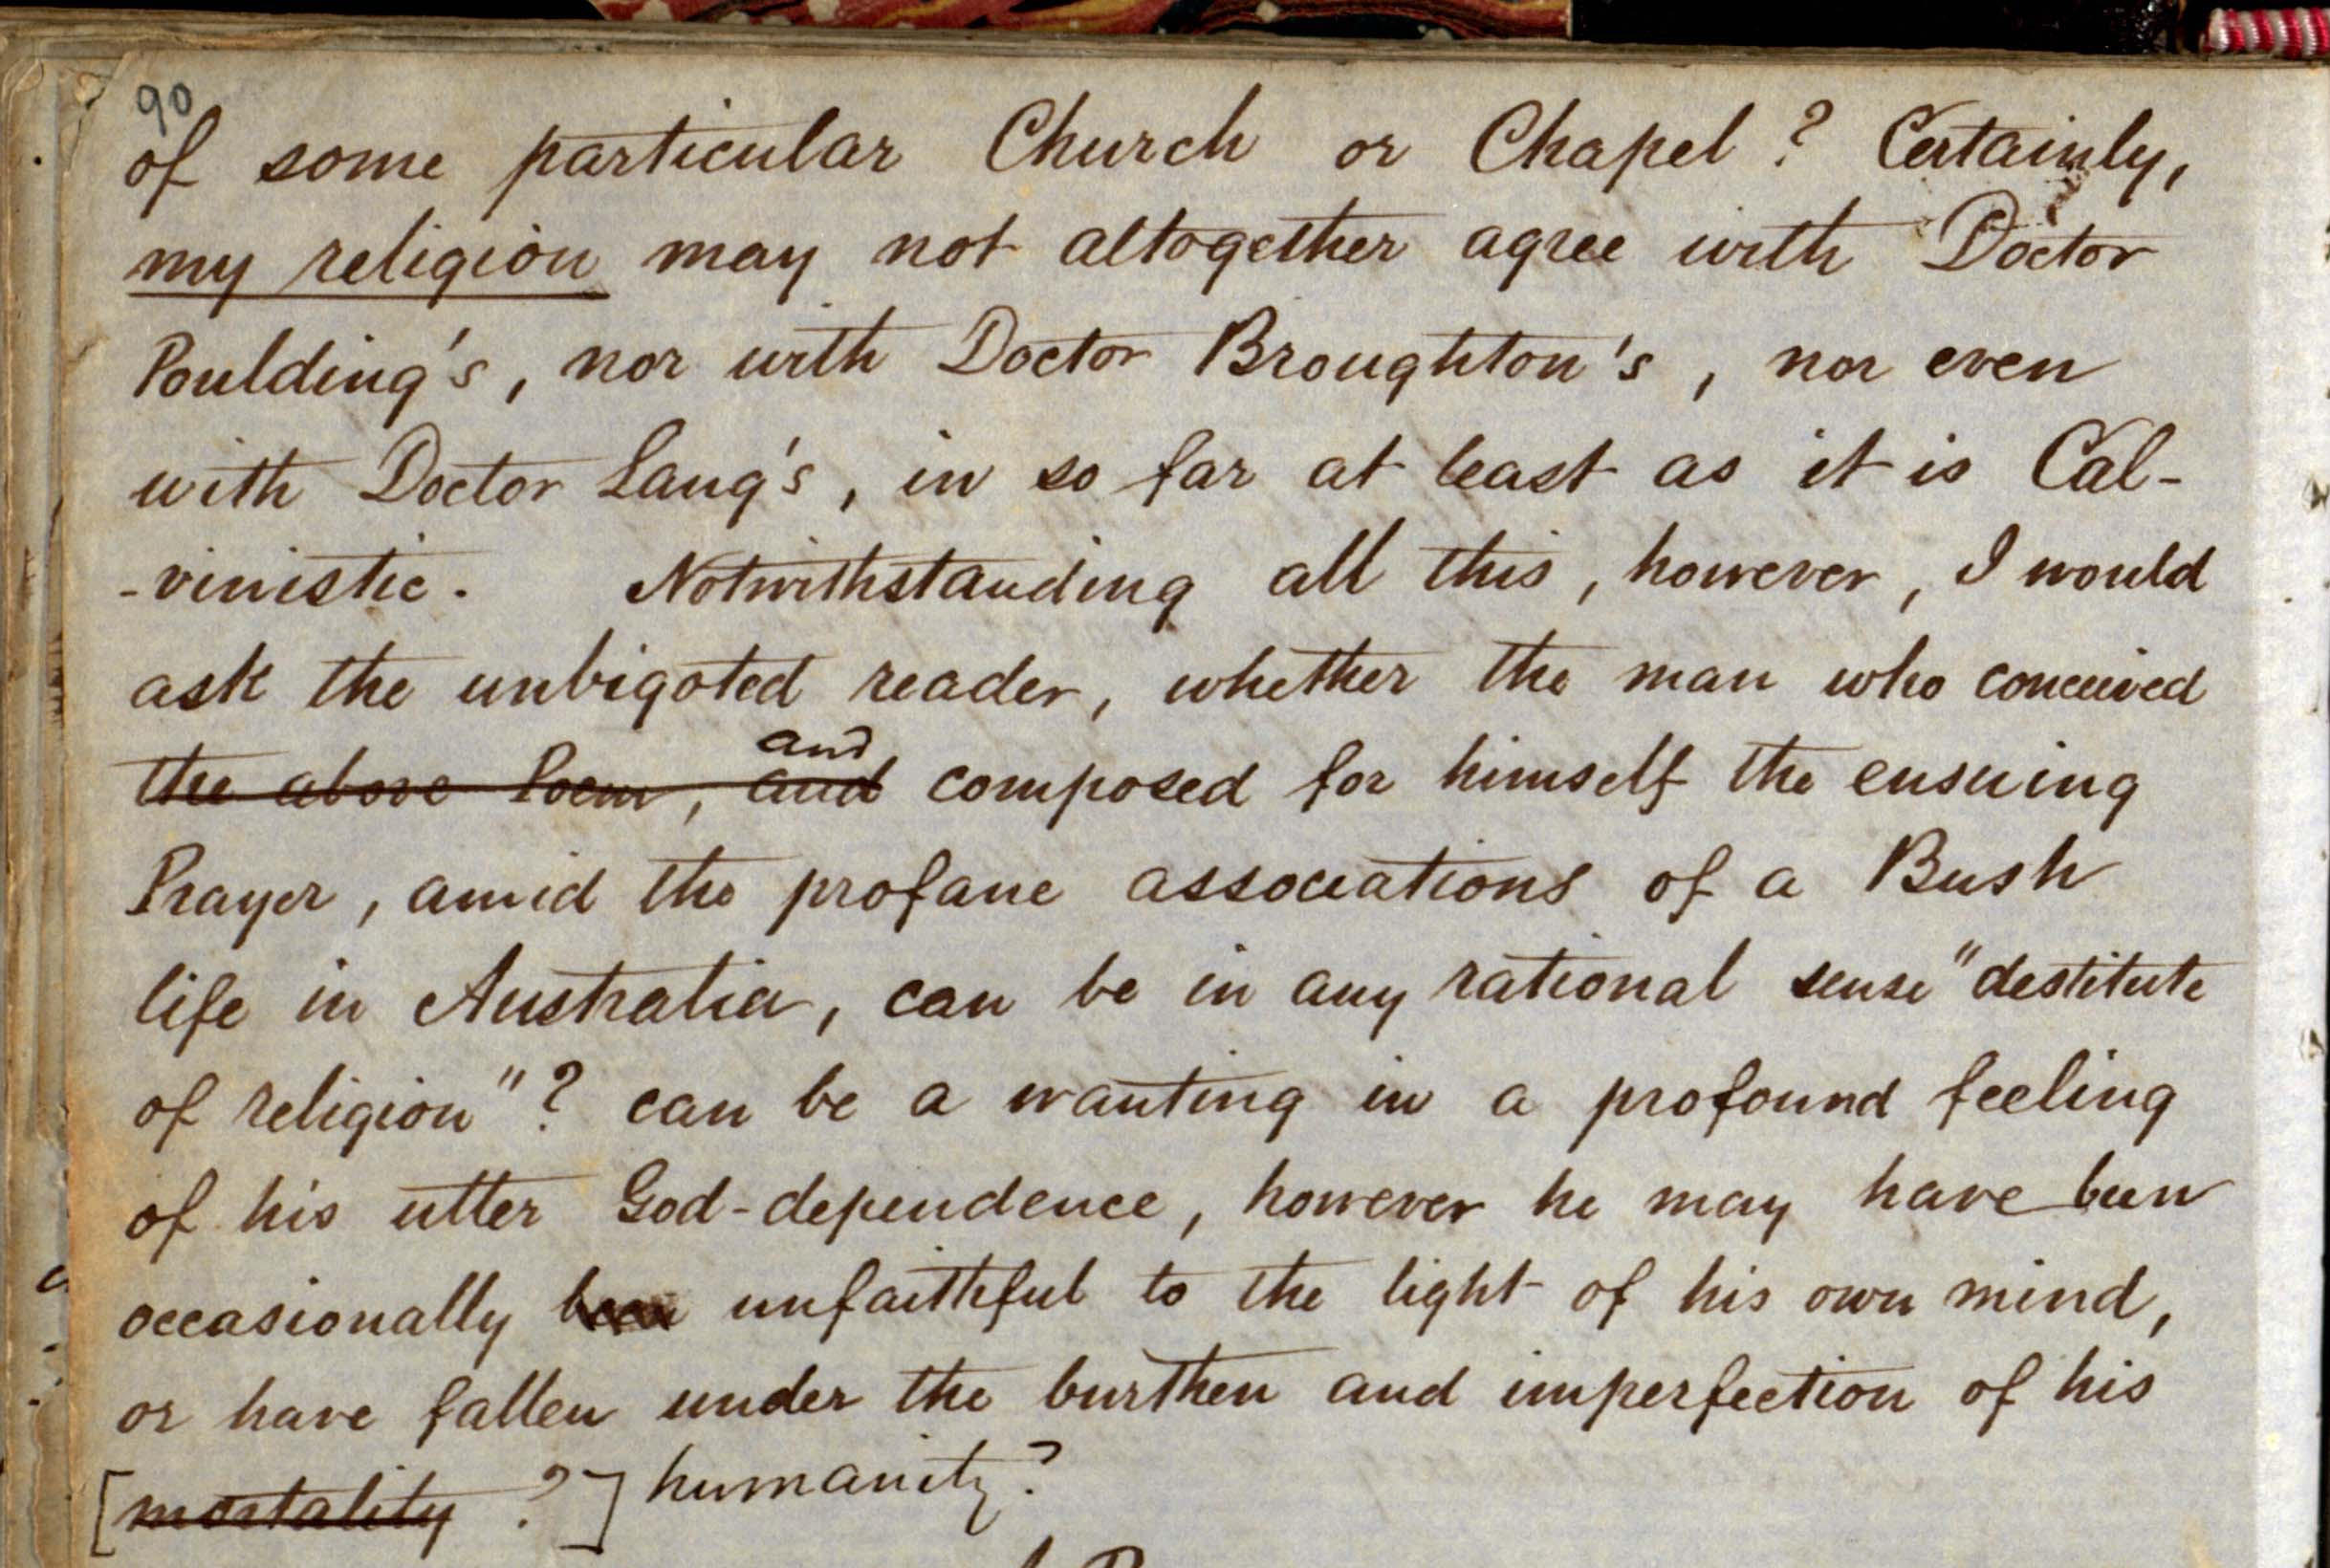 90
of some particular Church or Chapel? Certainly,
my religion may not altogether agree with Doctor
Poulding's, nor with Doctor Broughton's, nor even
with Doctor Lang's, in so far at least as it is Cal-
-vinistic. Notwithstanding all this, however, I would
ask the unbigoted reader, whether the man who conceived
and
the above Poem, and composed for himself the ensuing
Prayer, amid the profane associations of a Bush
life in Australia, can be in any rational sense "destitute
of religion"? can be a wanting in a profound feeling
of his utter God-dependence, however he may have been
occasionally been unfaithful to the light of his own mind,
or have fallen under the burthen and imperfection of his
[mortality ?] humanity?